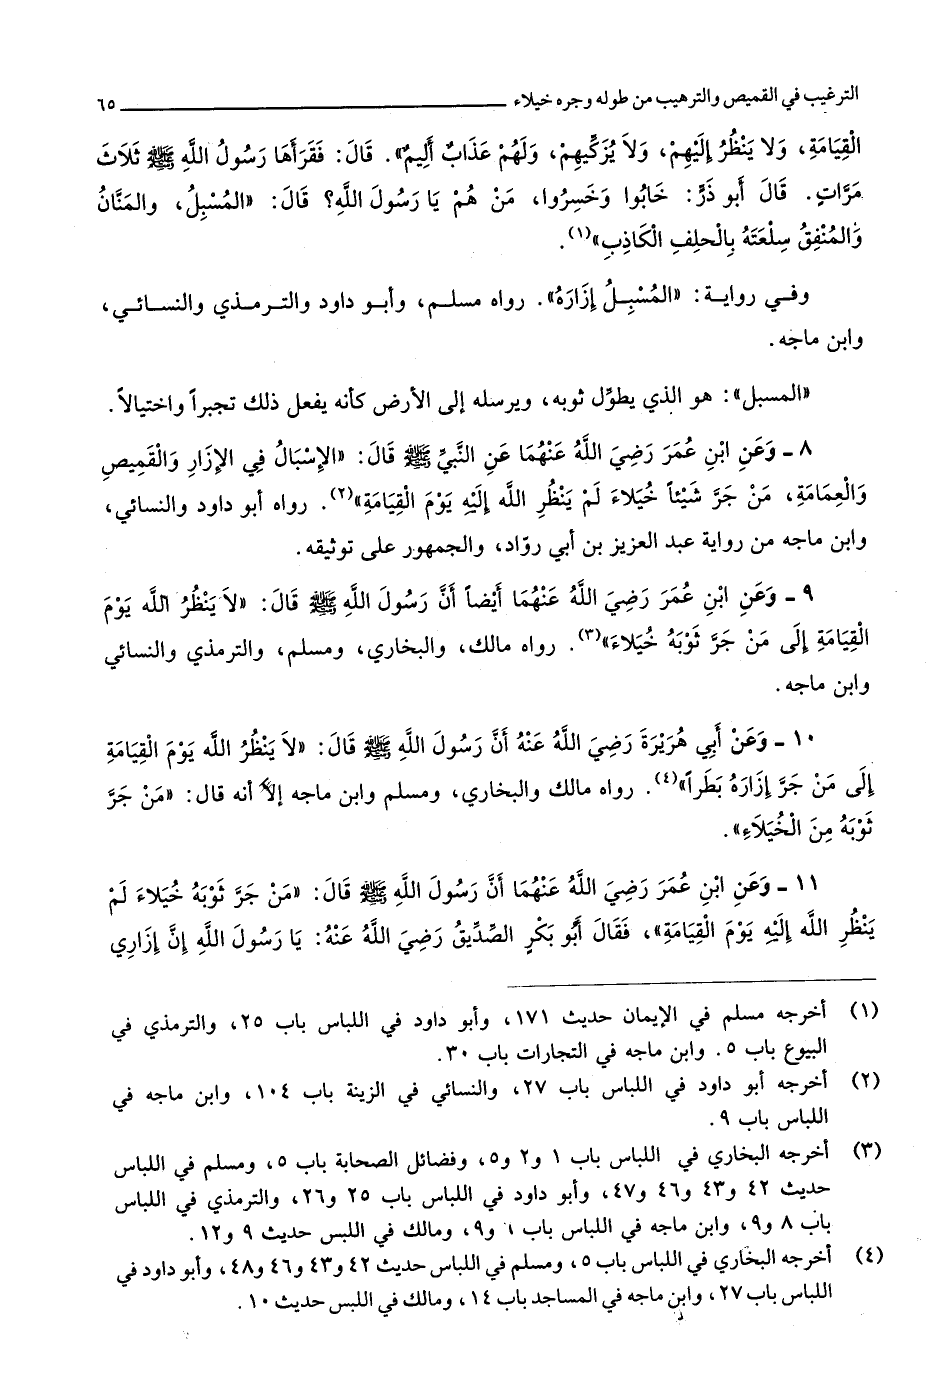 الترغيب في القميص والترهيب من طوله وجره خيلاء ٦٥
الْقِيَامَةِ، وَلا يَنْظُرُ إِلَيْهِمْ، وَلاَ يُزَكِّيهِمْ، وَلَهُمْ عَذَابٌ أَلِيمٌ». قَالَ: فَقَرَأَهَا رَسُولُ اللَّهِ ﷺ ثَلاَثَ
مَرَّاتٍ. قَالَ أَبو ذَرٍّ: خَابُوا وَخَسِرُوا، مَنْ هُمْ يَا رَسُولَ اللَّهِ؟ قَالَ: «المُسْبِلُ، والمَنَّانُ
وَالمُنْفِقُ سِلْعَتَهُ بِالْحلِفِ الْكَاذِبِ»(١).
وفي رواية: «المُسْبِلُ إِزَارَهُ». رواه مسلم، وأبو داود والترمذي والنسائي،
وابن ماجه.
«المسبل»: هو الذي يطوِّل ثوبه، ويرسله إلى الأرض كأنه يفعل ذلك تجبراً واختيالاً.
٨ - وَعَنِ ابْنِ عُمَرَ رَضِيَ اللَّهُ عَنْهُمَا عَنِ النَّبِيِّ ﷺ قَالَ: «الإِسْبَالُ فِي الإِزَارِ وَالْقَمِيصِ
وَالْعِمَامَةِ، مَنْ جَرَّ شَيْئاً خُيَلاءَ لَمْ يَنْظُرِ اللَّه إِلَيْهِ يَوْمَ الْقِيَامَةِ»(٢). رواه أبو داود والنسائي،
وابن ماجه من رواية عبد العزيز بن أبي روّاد، والجمهور على توثيقه.
٩ - وَعَنِ ابْنِ عُمَرَ رَضِيَ اللَّهُ عَنْهُمَا أَيْضاً أَنَّ رَسُولَ اللَّهِ ﷺ قَالَ: «لاَ يَنْظُرُ اللَّه يَوْمَ
الْقِيَامَةِ إِلَى مَنْ جَرَّ ثَوْبَهُ خُيَلاءَ»(٣). رواه مالك، والبخاري، ومسلم، والترمذي والنسائي
وابن ماجه.
١٠ - وَعَنْ أَبِي هُرَيْرَةَ رَضِيَ اللَّهُ عَنْهُ أَنَّ رَسُولَ اللَّهِ ﷺ قَالَ: «لاَ يَنْظُرُ اللَّه يَوْمَ الْقِيَامَةِ
إِلَى مَنْ جَرَّ إِزَارَهُ بَطَراً»(٤). رواه مالك والبخاري، ومسلم وابن ماجه إلاَّ أنه قال: «مَنْ جَرَّ
ثَوْبَهُ مِنَ الْخُيَلاَءِ».
١١ - وَعَنِ ابْنِ عُمَرَ رَضِيَ اللَّهُ عَنْهُمَا أَنَّ رَسُولَ اللَّهِ ﷺ قَالَ: «مَنْ جَرَّ ثَوْبَهُ خُيَلاءَ لَمْ
يَنْظُرِ اللَّه إِلَيْهِ يَوْمَ الْقِيَامَةِ»، فَقَالَ أَبُو بَكْرٍ الصِّدِّيقُ رَضِيَ اللَّهُ عَنْهُ: يَا رَسُولَ اللَّهِ إِنَّ إِزَارِي
(١) أخرجه مسلم في الإيمان حديث ١٧١، وأبو داود في اللباس باب ٢٥، والترمذي في
البيوع باب ٥. وابن ماجه في التجارات باب ٣٠.
(٢) أخرجه أبو داود في اللباس باب ٢٧، والنسائي في الزينة باب ١٠٤، وابن ماجه في
اللباس باب ٩.
(٣) أخرجه البخاري في اللباس باب ١ و٢ و٥، وفضائل الصحابة باب ٥، ومسلم في اللباس
حديث ٤٢ و٤٣ و٤٦ و٤٧، وأبو داود في اللباس باب ٢٥ و٢٦، والترمذي في اللباس
باب ٨ و٩، وابن ماجه في اللباس باب ٦ و٩، ومالك في اللبس حديث ٩ و١٢.
(٤) أخرجه البخاري في اللباس باب ٥، ومسلم في اللباس حديث ٤٢ و٤٣ و٤٦ و٤٨، وأبو داود في
اللباس باب ٢٧، وابن ماجه في المساجد باب ١٤، ومالك في اللبس حديث ١٠.